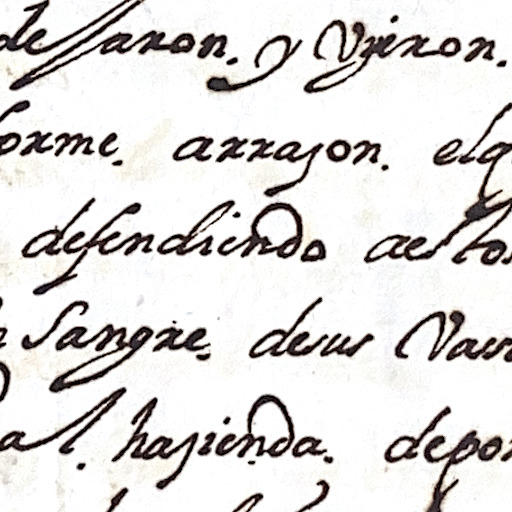 dexaron. y Vinieron.
forme. arrason. elq
defendiendo aestos
Sangre. desus Vas
al. hasienda. depon